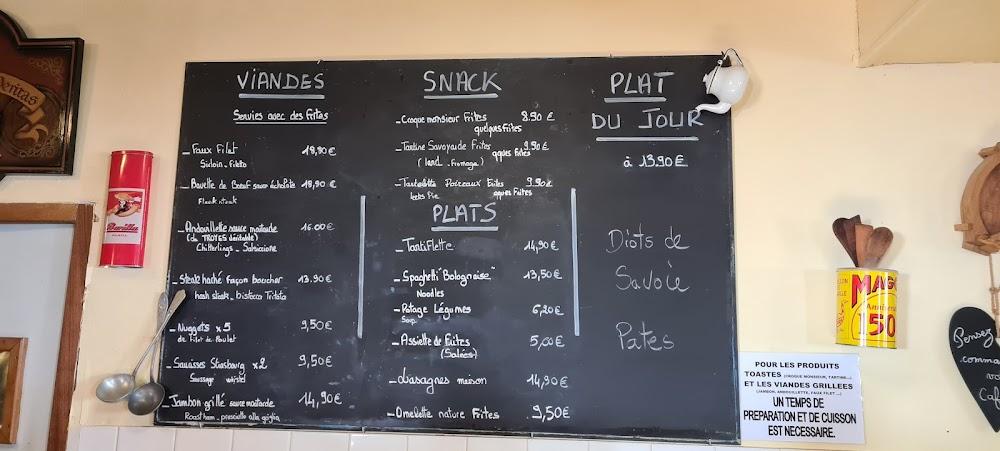 VIANDES
Servies avec des frites
_ Faux Filet 18,90 €
Sirloin - filetto
_ Bavette de Boeuf sauce échalote 18,90 €
Flank steak
_ Andouillette sauce moutarde 16.00 €
(de TROYES véritable)
Chitterlings - Salsiccione
_ Steak haché Façon Boucher 13.90 €
hash steak _ bistecca Tritata
_ Nuggets x5 9,50€
de filet de Poulet
_ Saucisses Strasbourg x2 9,50€
Sausage würstel
_ Jambon grillé sauce moutarde 14,90€
Roast ham - prosciutto alla griglia
SNACK
_ Croque monsieur Frites 8.90 €
quelques frites
_ Tartine Savoyarde Frites 9.90 €
qques frites
(lard - fromage)
_ Tartelette Poireaux Frites 9.90€
Leeks Pie qques Frites
PLATS
_ Tartiflette 14,90€
_ Spaghetti "Bolognaise" 13,50€
Noodles
_ Potage Légumes 6,20€
Soup
_ Assiette de Frites 5,00€
(Salées)
_ Lasagnes maison 14,90€
_ Omelette nature Frites 9,50€
PLAT
DU JOUR
à 13.90€
Diots de
Savoie
Pates
POUR LES PRODUITS
TOASTES (CROQUE MONSIEUR, TARTINE...)
ET LES VIANDES GRILLEES
(JAMBON, ANDOUILLETTE, FAUX FILET ...)
UN TEMPS DE
PREPARATION ET DE CUISSON
EST NECESSAIRE.
Barilla
MAG
150
Pensez
comma
vo
Caf
veritas